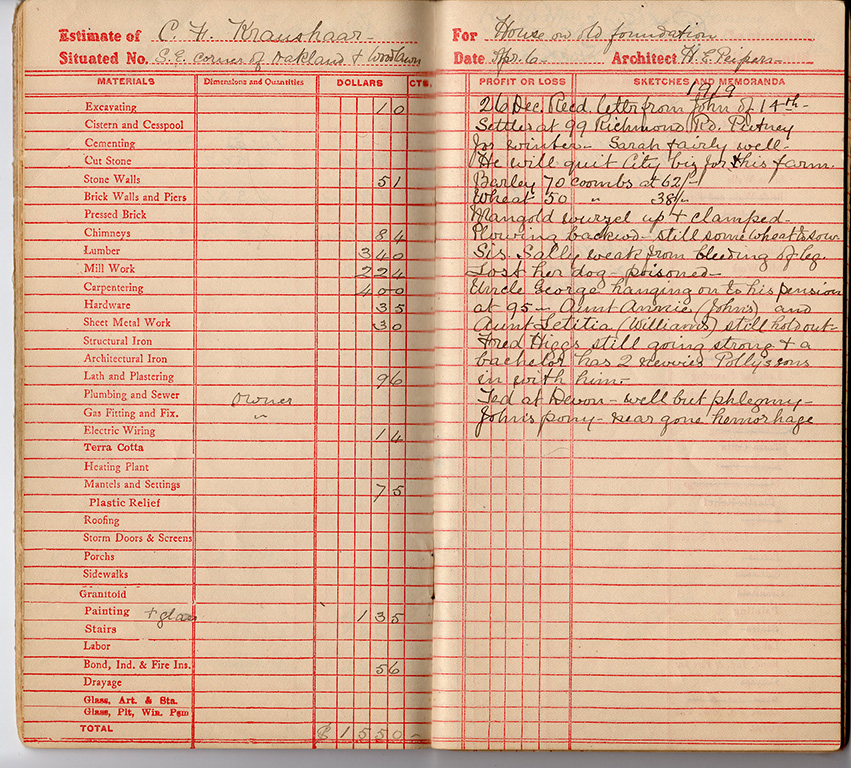 Estimate of C. H. Kraushaar
Situated No. S.E. corner of Oakland & Woodlawn
MATERIALS Dimensions and Quantities DOLLARS CTS.
Excavating 10
Cistern and Cesspool
Cementing
Cut Stone
Stone Walls 51
Brick Walls and Piers
Pressed Brick
Chimneys 84
Lumber 340
Mill Work 224
Carpentering 400
Hardware 35
Sheet Metal Work 30
Structural Iron
Architectural Iron
Lath and Plastering 96
Plumbing and Sewer owner
Gas Fitting and Fix. "
Electric Wiring 14
Terra Cotta
Heating Plant
Mantels and Settings 75
Plastic Relief
Roofing
Storm Doors & Screens
Porchs
Sidewalks
Granitoid
Painting + glass 135
Stairs
Labor
Bond, Ind. & Fire Ins. 56
Drayage
Glass, Art. & Sta.
Glass, Plt, Win. Pgm
TOTAL $1550-
For House on old foundation
Date Apr. 6 - Architect H. E. Peipers
PROFIT OR LOSS SKETCHES AND MEMORANDA
1919
26 Dec. Recd. letter from John of 14th -
Settles at 99 Richmond Rd. Putney
for winter - Sarah fairly well -
He will quit City biz for this farm.
Barley 70 coombs at 62/-
Wheat 50 " 38/-
Mangold wurzel up & clamped -
Plowing backwd - still some wheat to sow
Sis. Sally weak from bleeding of leg.
Lost her dog - poisoned -
Uncle George hanging on to his pension
at 95 - Aunt Annie (John's) and
Aunt Letitia (William's) still hold out -
Fred Higgs still going strong & a
bachelor has 2 nevvies Polly's sons
in with him -
Ted at Devon - well but phlegmy -
John's pony - near gone hemorhage